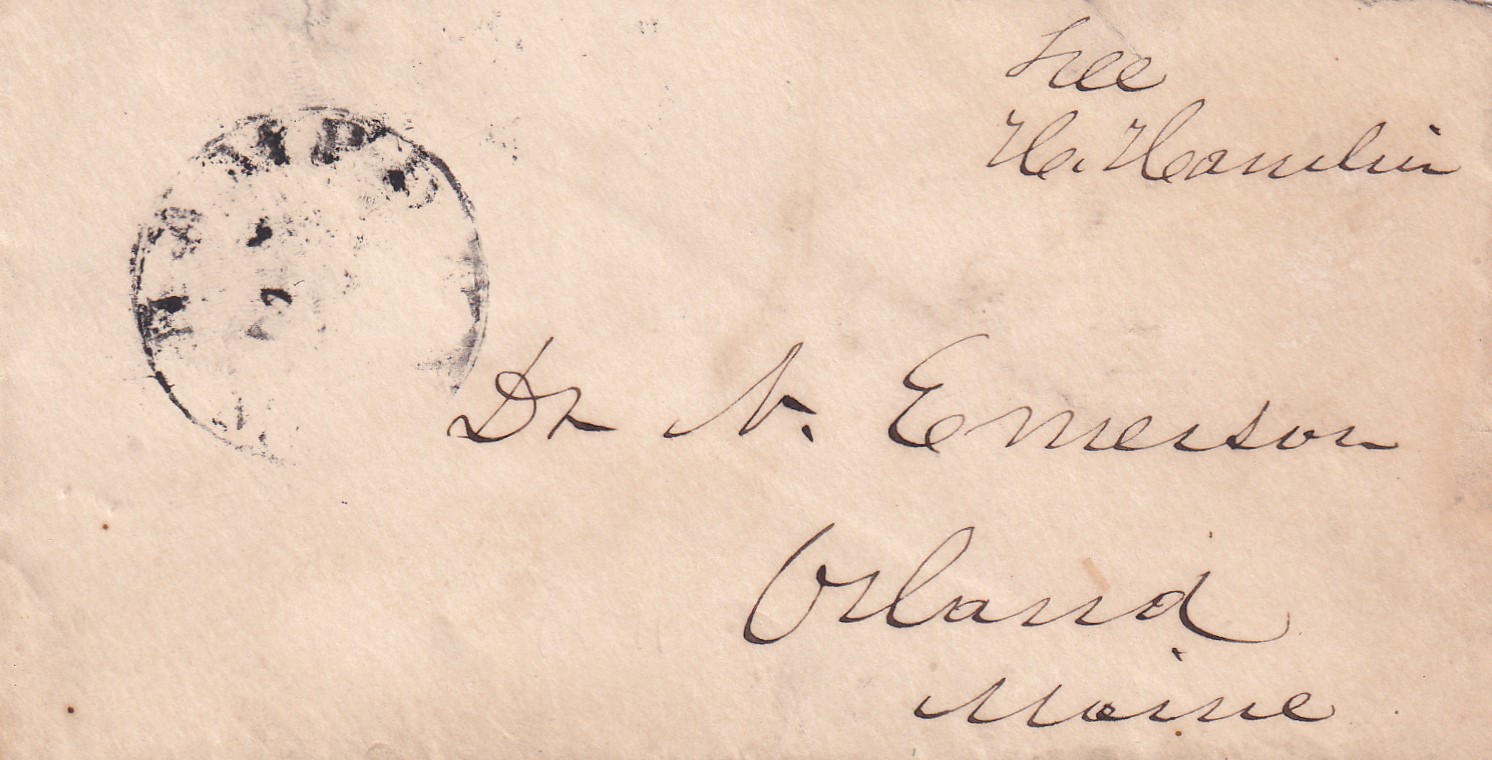 Free
H. Hamlin
Dr N. Emerson
Orland
Maine